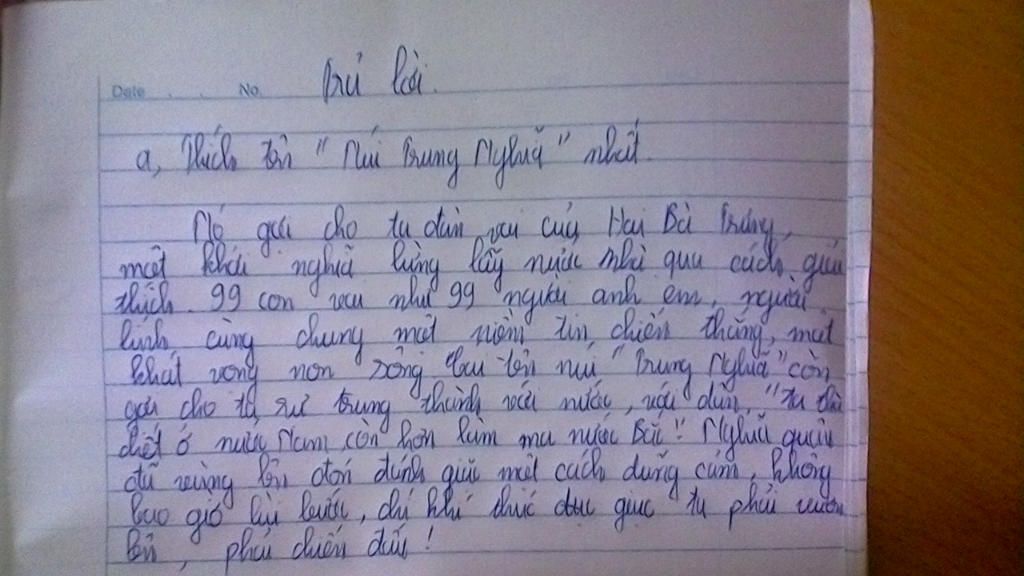 Date . . No.
Trả lời.
a, Thích tên "Núi Trung Nghĩa" nhất.
Nó gợi cho ta đàn voi của Hai Bà Trưng,
một khởi nghĩa lừng lẫy nước nhà qua cách giải
thích. 99 con voi như 99 người anh em, người
lính cùng chung một niềm tin, chiến thắng, một
khát vọng non sông tên núi "Trung Nghĩa" còn
gợi cho ta sự trung thành với nước, với dân, "ta thà
chết ở nước Nam còn hơn làm ma nước Bắc". Nghĩa quân
đã vùng lên đánh giặc một cách dũng cảm, không
bao giờ lùi bước, chí khí thúc dục giục ta phải vươn
lên, phải chiến đấu!